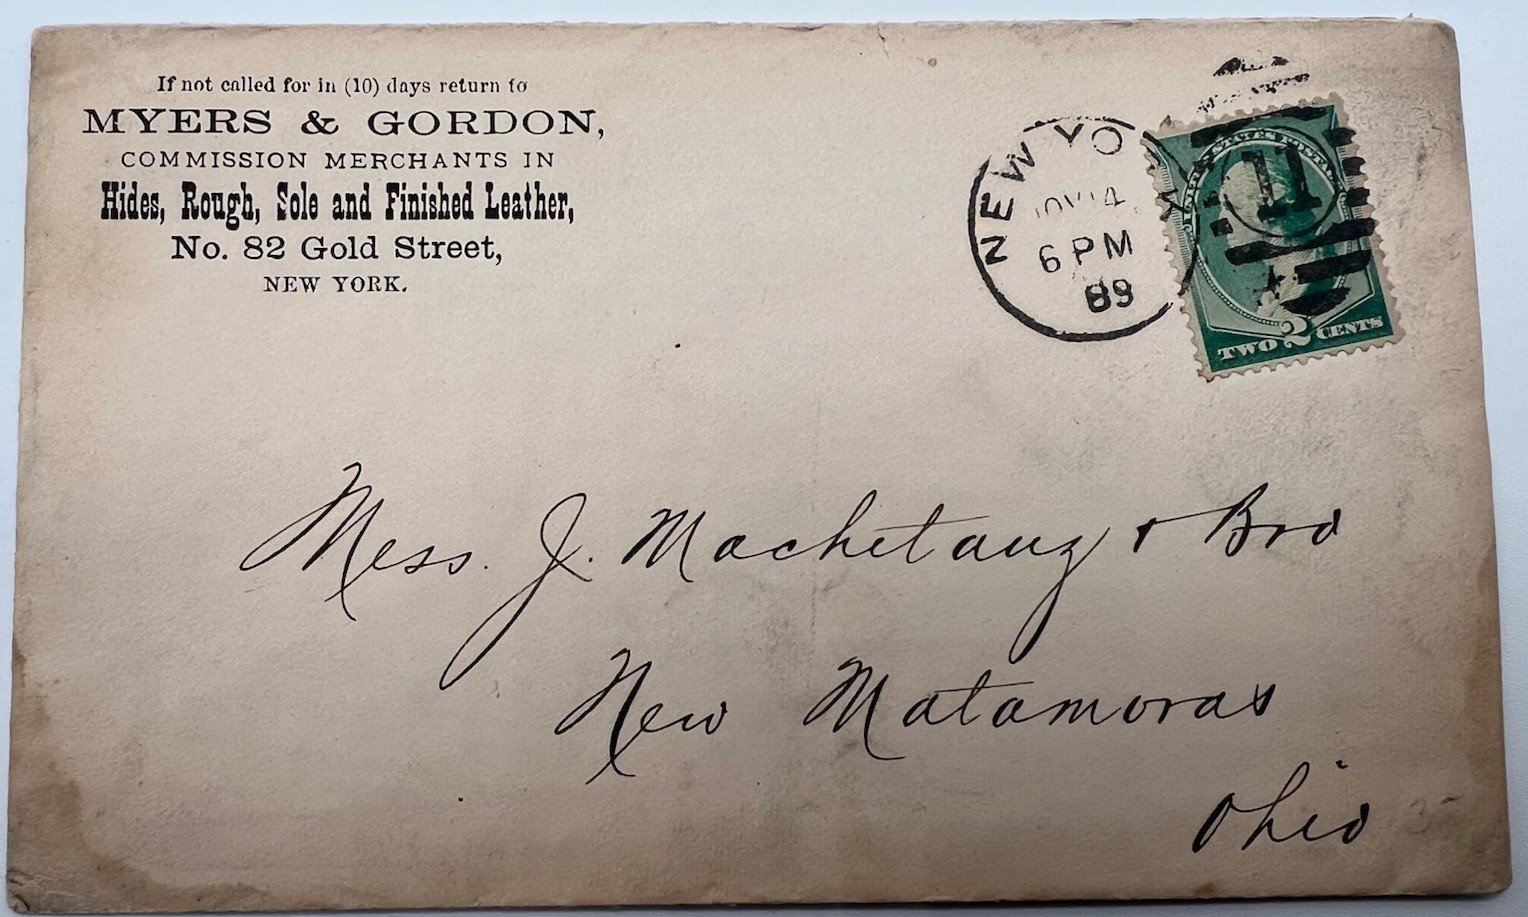 If not called for in (10) days return to
MYERS & GORDON,
COMMISSION MERCHANTS IN
Hides, Rough, Sole and Finished Leather,
No. 82 Gold Street,
NEW YORK.
NEW YO
NOV 14
6 PM
89
11
UNITED STATES POSTAGE
TWO 2 CENTS
Mess. J. Machetanz & Bro
New Matamoras
Ohio